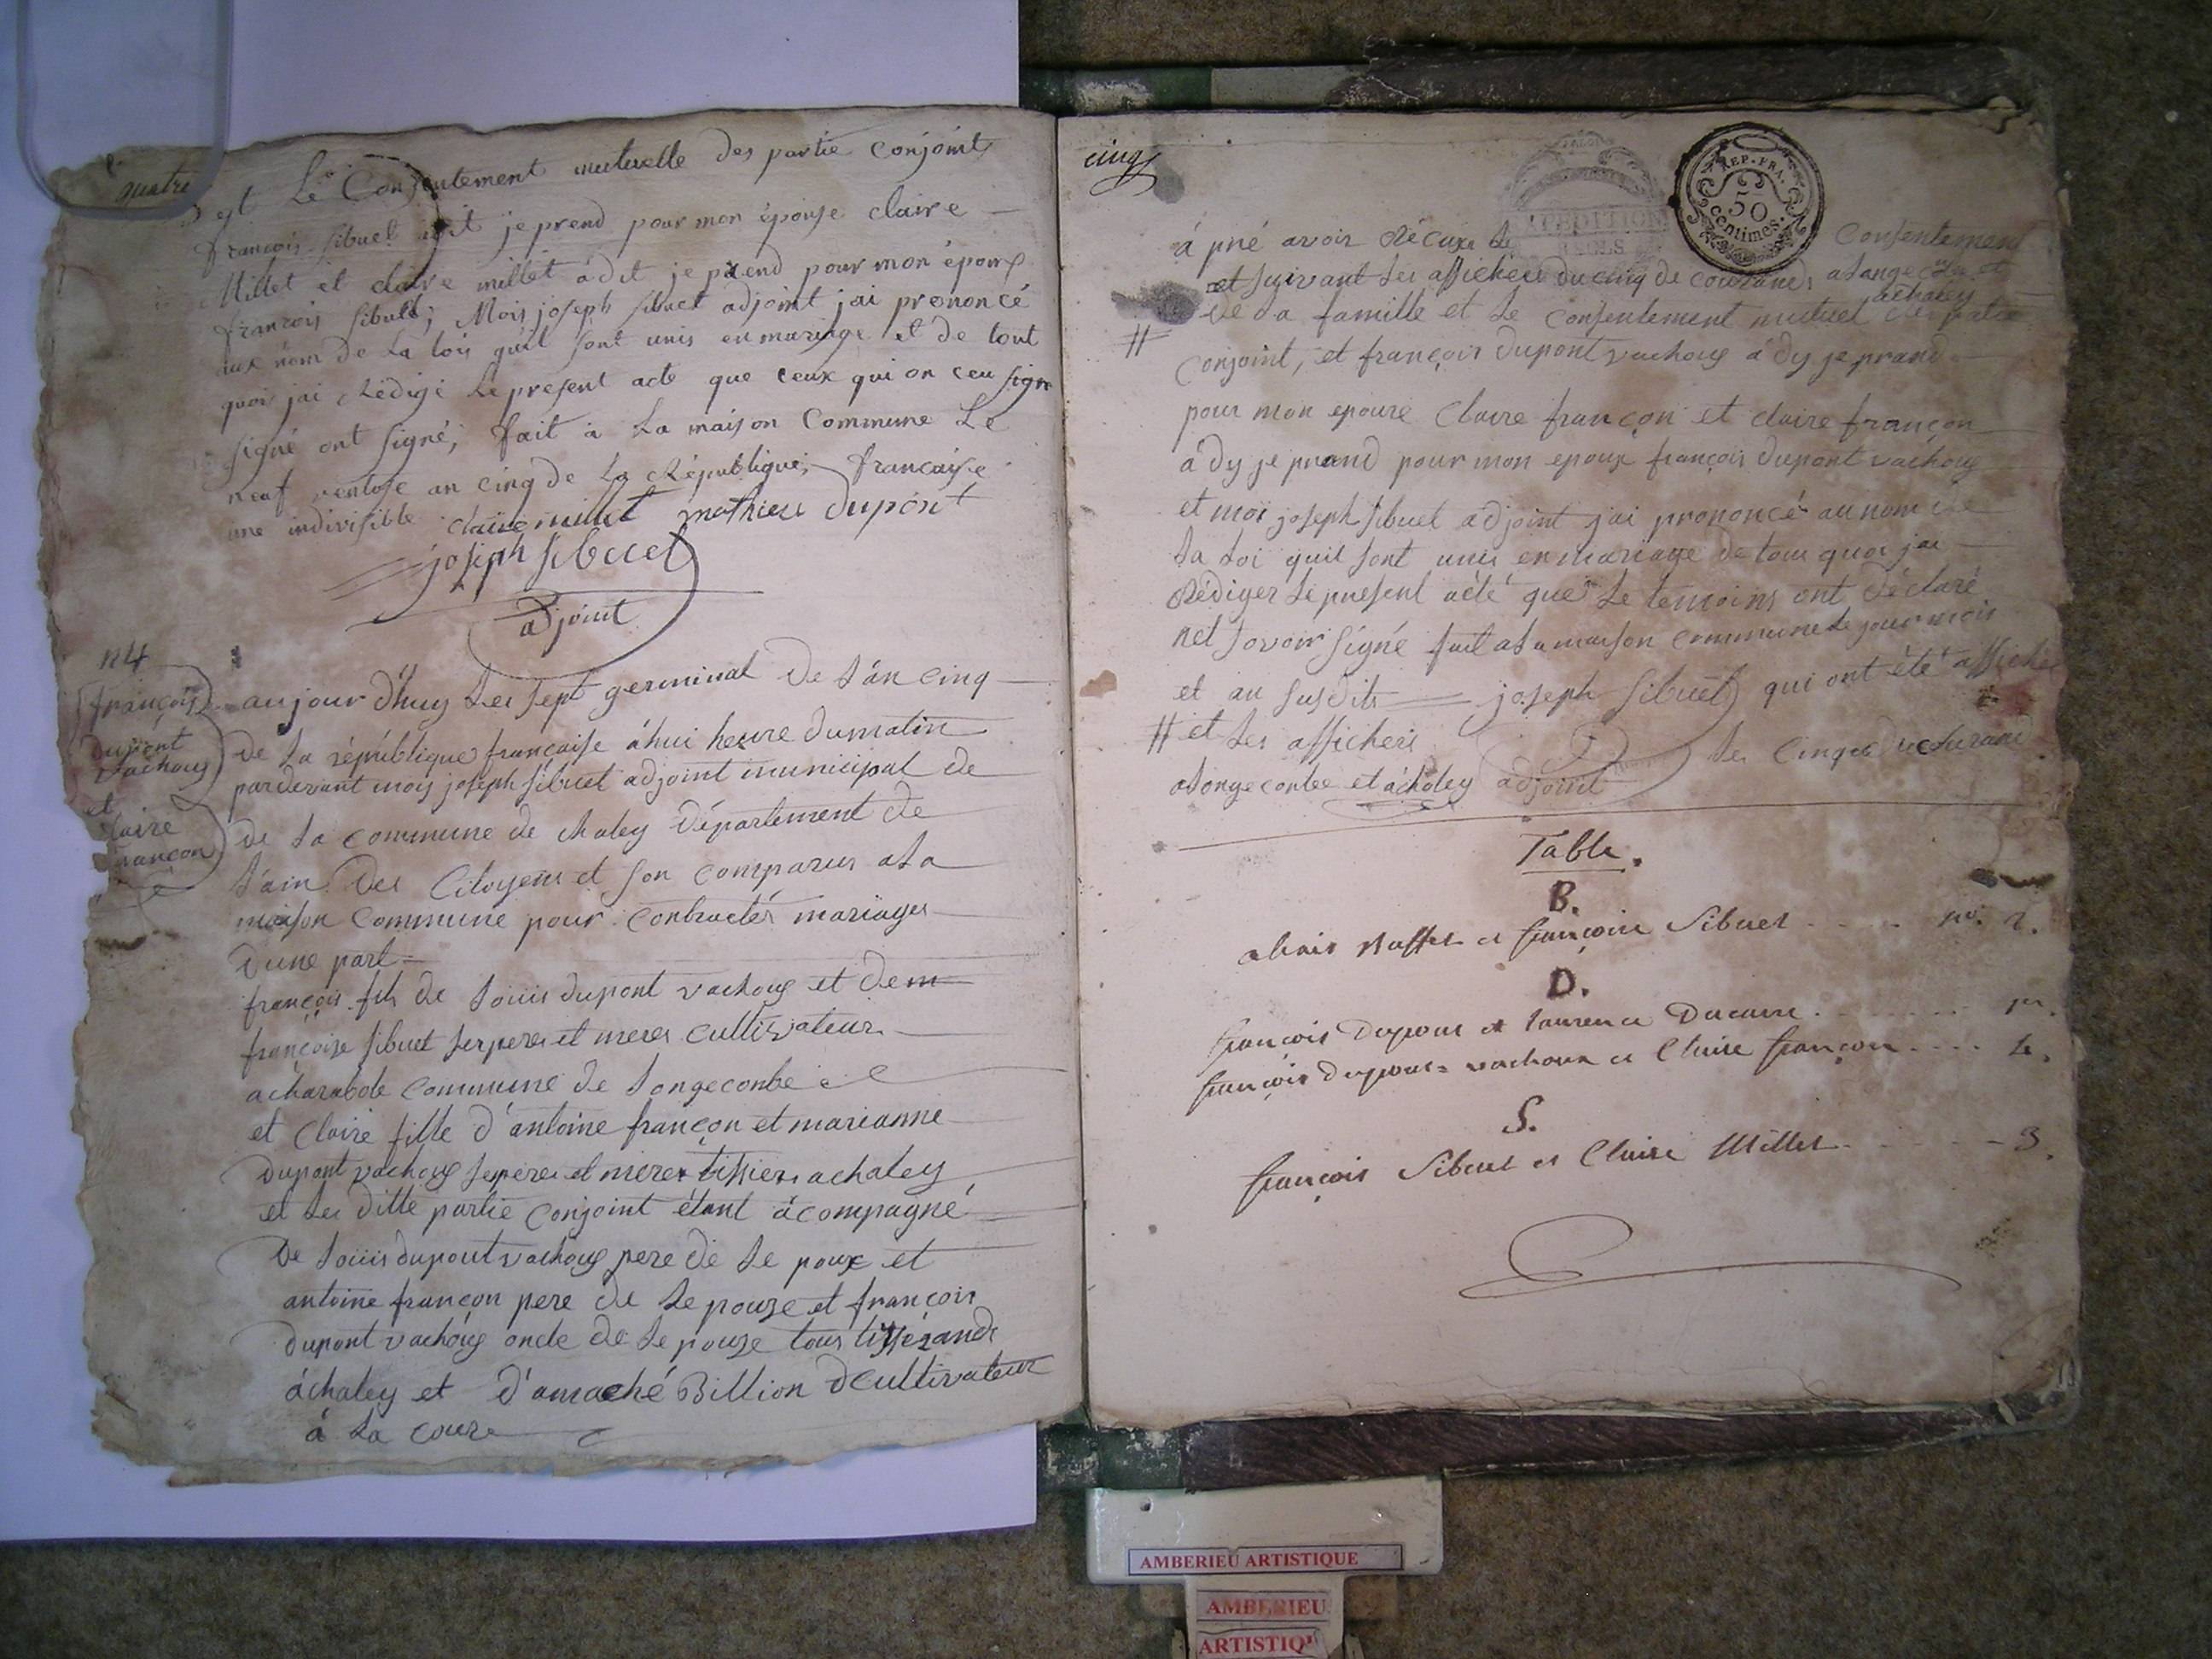 quatre
et Le Consentement mutuelle des partie conjoints
françois Sibuet adit je prend pour mon épouse claire
Millet et claire millet à dit je prend pour mon époux
françois Sibuet; Mois joseph Sibuet adjoint jai prononcé
aux nom de La lois quil sont unis en mariage et de tout
quoi jai Rédigé Le present acte que ceux qui on ceu signe
signé ont signé; fait à La maison Commune Le
neuf ventose an cinq de La République francaise
une indivisible claire millet mathieu dupont
joseph Sibuet
adjoint
n 4
françois
dupont
vachoug
et
claire
françon
aujour d'huy Les sept germinal de L'án cinq
De La république française áhui heure dumatin
pardevant mois joseph sibuet adjoint municipal de
de La commune de chaley Département de
L'ain Des Citoyens et son comparus aLa
maison commune pour contractés mariages
dune part
françois fils de Loüis dupont vachoug et de m
françoise sibuet serperes et meres cultivateur
acharabole commune de Longecombe
et claire fille d'antoine françon et marianne
dupont vachoug seperes et meres tissiers achaley
et Les ditte partie conjoint étant ácompagné
De Loüis dupont vachoug pere de Le poux et
antoine françon pere de Le pouze et françois
dupont vachoug oncle de Le pouze tous tisserands
áchaley et d'amaché Billion Cultivateur
á La coure
cinq
REP. FRA.
50
centimes.
á pré avoir Récuxe Le Consentement
et suivant Les affichees du cinq de courant aLonge
achaley
De La famille et Le consentement mutuel des partie
#
conjoint, et françois dupont vachoug á dy je prand
pour mon epouse Claire françon et claire françon
á dy je prand pour mon epoux françois dupont vachoug
et moi joseph sibuet adjoint jai prononcé au nom de
La Loi quil sont unis enmariage de tous quoi jai
Rédiger Le present acté que Le temoins ont Déclaré
net savoir signée fait aLa maison commune Le jour mois
et an susdits joseph Sibuet qui ont été affichée
# et Les affichers Les cinqes du Courand
aLonge combe et áchaley adjoint
Table.
B.
Buffet et françoise Sibuet .... no. 2.
D.
françois Dupont et Laurence Ducarre ........ 1er.
françois dupont-vachoux et Claire françon .... 4.
S.
françois Sibuet et Claire Millet ...... 3.
AMBERIEU ARTISTIQUE
AMBERIEU
ARTISTIQU